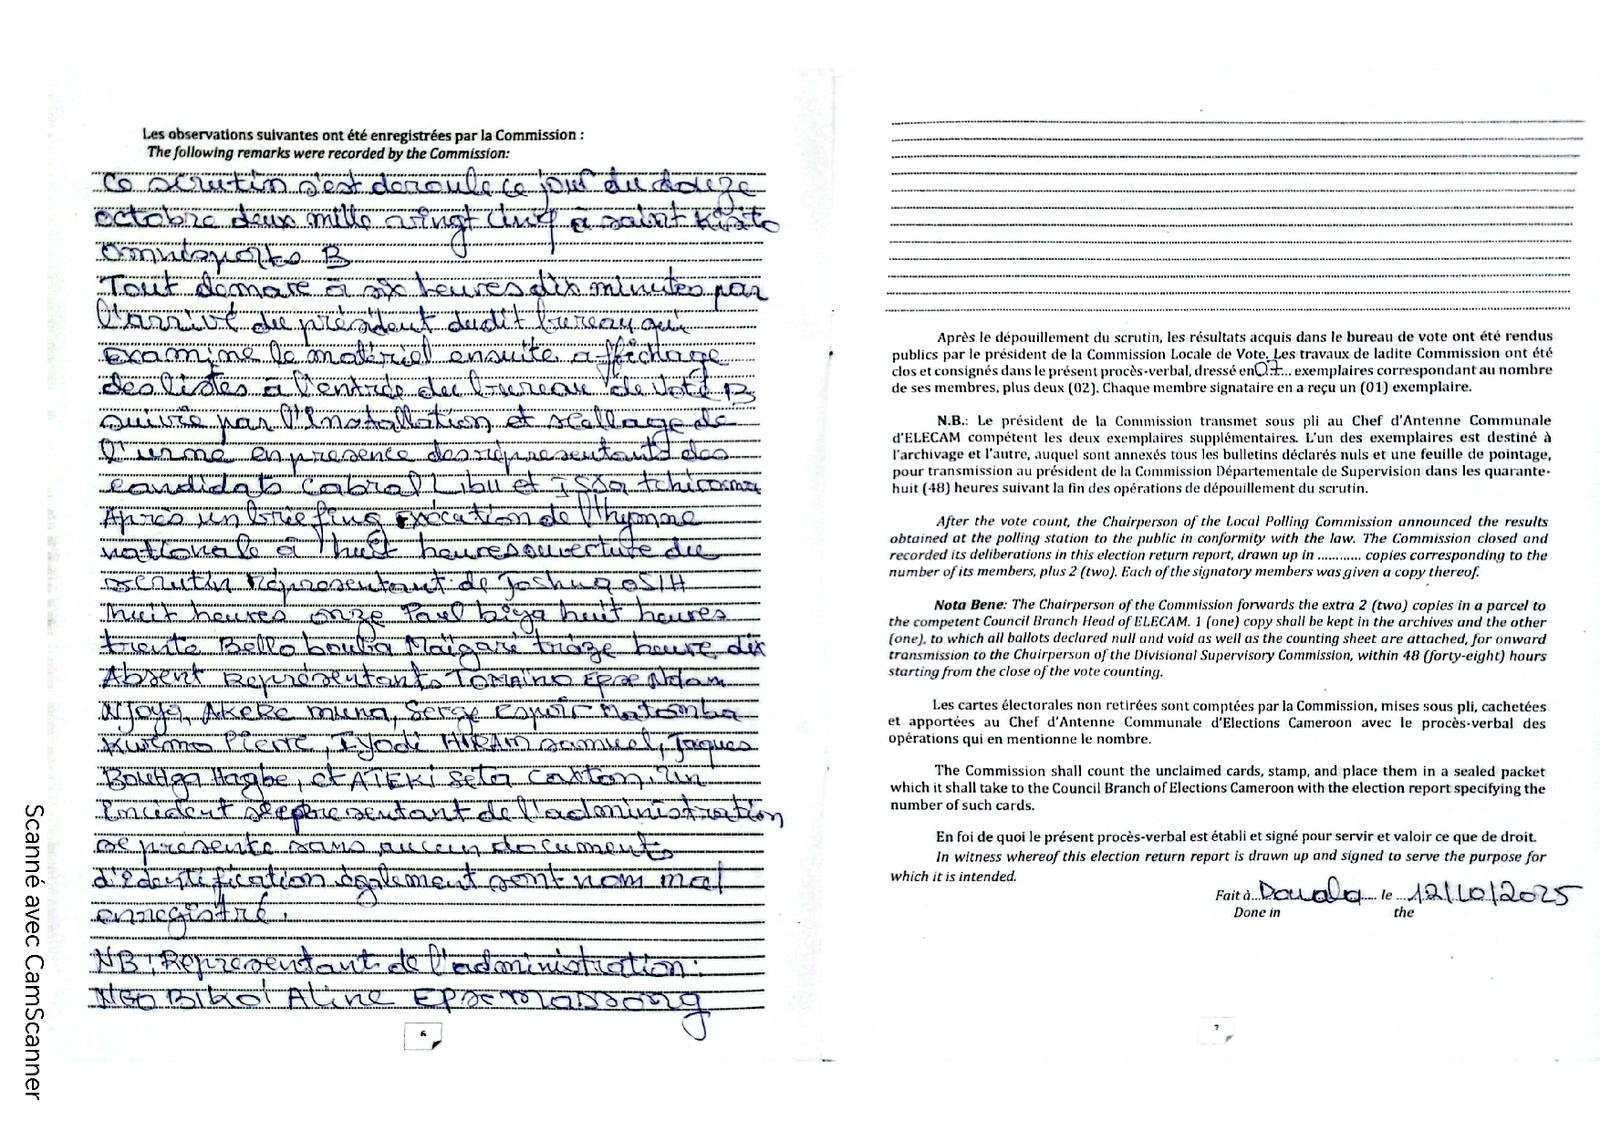 Les observations suivantes ont été enregistrées par la Commission :
The following remarks were recorded by the Commission:
Ce scrutin s'est deroule ce jour du douze
octobre deux mille vingt cinq à saint Kisito
omnisports B
Tout demare à six heures dix minutes par
l'arrivé du président dudit bureau qui
examine le matériel ensuite affichage
des listes a l'entrée du bureau de vote B
suivie par l'Installation et scellage de
l'urne en presence des représentants des
candidats Cabral Libii et ISSa tchiroma
Après un briefing exécution de l'hymne
nationale à huit heures ouverture du
scrutin Répresentant de Joshua OSIH
huit heures onze Paul biya huit heures
trente Bello bouba Maïgari treize heure dix
Absent Représentants TOMAÏNO Epse Ndam
Njoya, AKERE muna, Serge Espoir Matomba
Kwemo Pierre, Iyodi HIRAM samuel, Jaques
Bouhga Hagbe, et ATEKI Seta Caxton. Un
Incident Répresentant de l'administration
se presente sans aucun documents
d'identification également sont nom mal
enregistré.
NB : Representant de l'administration :
NGO BIKOI Aline Epse massong
6
Après le dépouillement du scrutin, les résultats acquis dans le bureau de vote ont été rendus
publics par le président de la Commission Locale de Vote. Les travaux de ladite Commission ont été
clos et consignés dans le présent procès-verbal, dressé en 07 exemplaires correspondant au nombre
de ses membres, plus deux (02). Chaque membre signataire en a reçu un (01) exemplaire.
N.B.: Le président de la Commission transmet sous pli au Chef d'Antenne Communale
d'ELECAM compétent les deux exemplaires supplémentaires. L'un des exemplaires est destiné à
l'archivage et l'autre, auquel sont annexés tous les bulletins déclarés nuls et une feuille de pointage,
pour transmission au président de la Commission Départementale de Supervision dans les quarante-
huit (48) heures suivant la fin des opérations de dépouillement du scrutin.
After the vote count, the Chairperson of the Local Polling Commission announced the results
obtained at the polling station to the public in conformity with the law. The Commission closed and
recorded its deliberations in this election return report, drawn up in ............ copies corresponding to the
number of its members, plus 2 (two). Each of the signatory members was given a copy thereof.
Nota Bene: The Chairperson of the Commission forwards the extra 2 (two) copies in a parcel to
the competent Council Branch Head of ELECAM. 1 (one) copy shall be kept in the archives and the other
(one), to which all ballots declared null and void as well as the counting sheet are attached, for onward
transmission to the Chairperson of the Divisional Supervisory Commission, within 48 (forty-eight) hours
starting from the close of the vote counting.
Les cartes électorales non retirées sont comptées par la Commission, mises sous pli, cachetées
et apportées au Chef d'Antenne Communale d'Elections Cameroon avec le procès-verbal des
opérations qui en mentionne le nombre.
The Commission shall count the unclaimed cards, stamp, and place them in a sealed packet
which it shall take to the Council Branch of Elections Cameroon with the election report specifying the
number of such cards.
En foi de quoi le présent procès-verbal est établi et signé pour servir et valoir ce que de droit.
In witness whereof this election return report is drawn up and signed to serve the purpose for
which it is intended.
Fait à Douala le 12/10/2025
Done in the
7
Scanné avec CamScanner